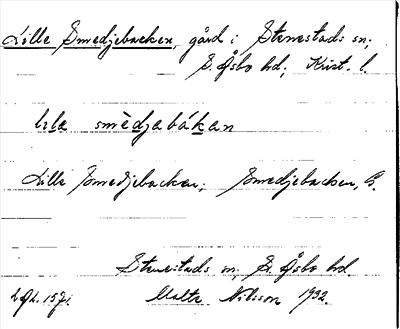 Lille Smedjebacken, gård i Stenestads sn;
S. Åsbo hd; Krist. l.
lıla smèdjabákan
Lille Smedjebacken; Smedjebacken, G.
Stenestads sn, S. Åsbo hd
Malte Nilsson 1932.